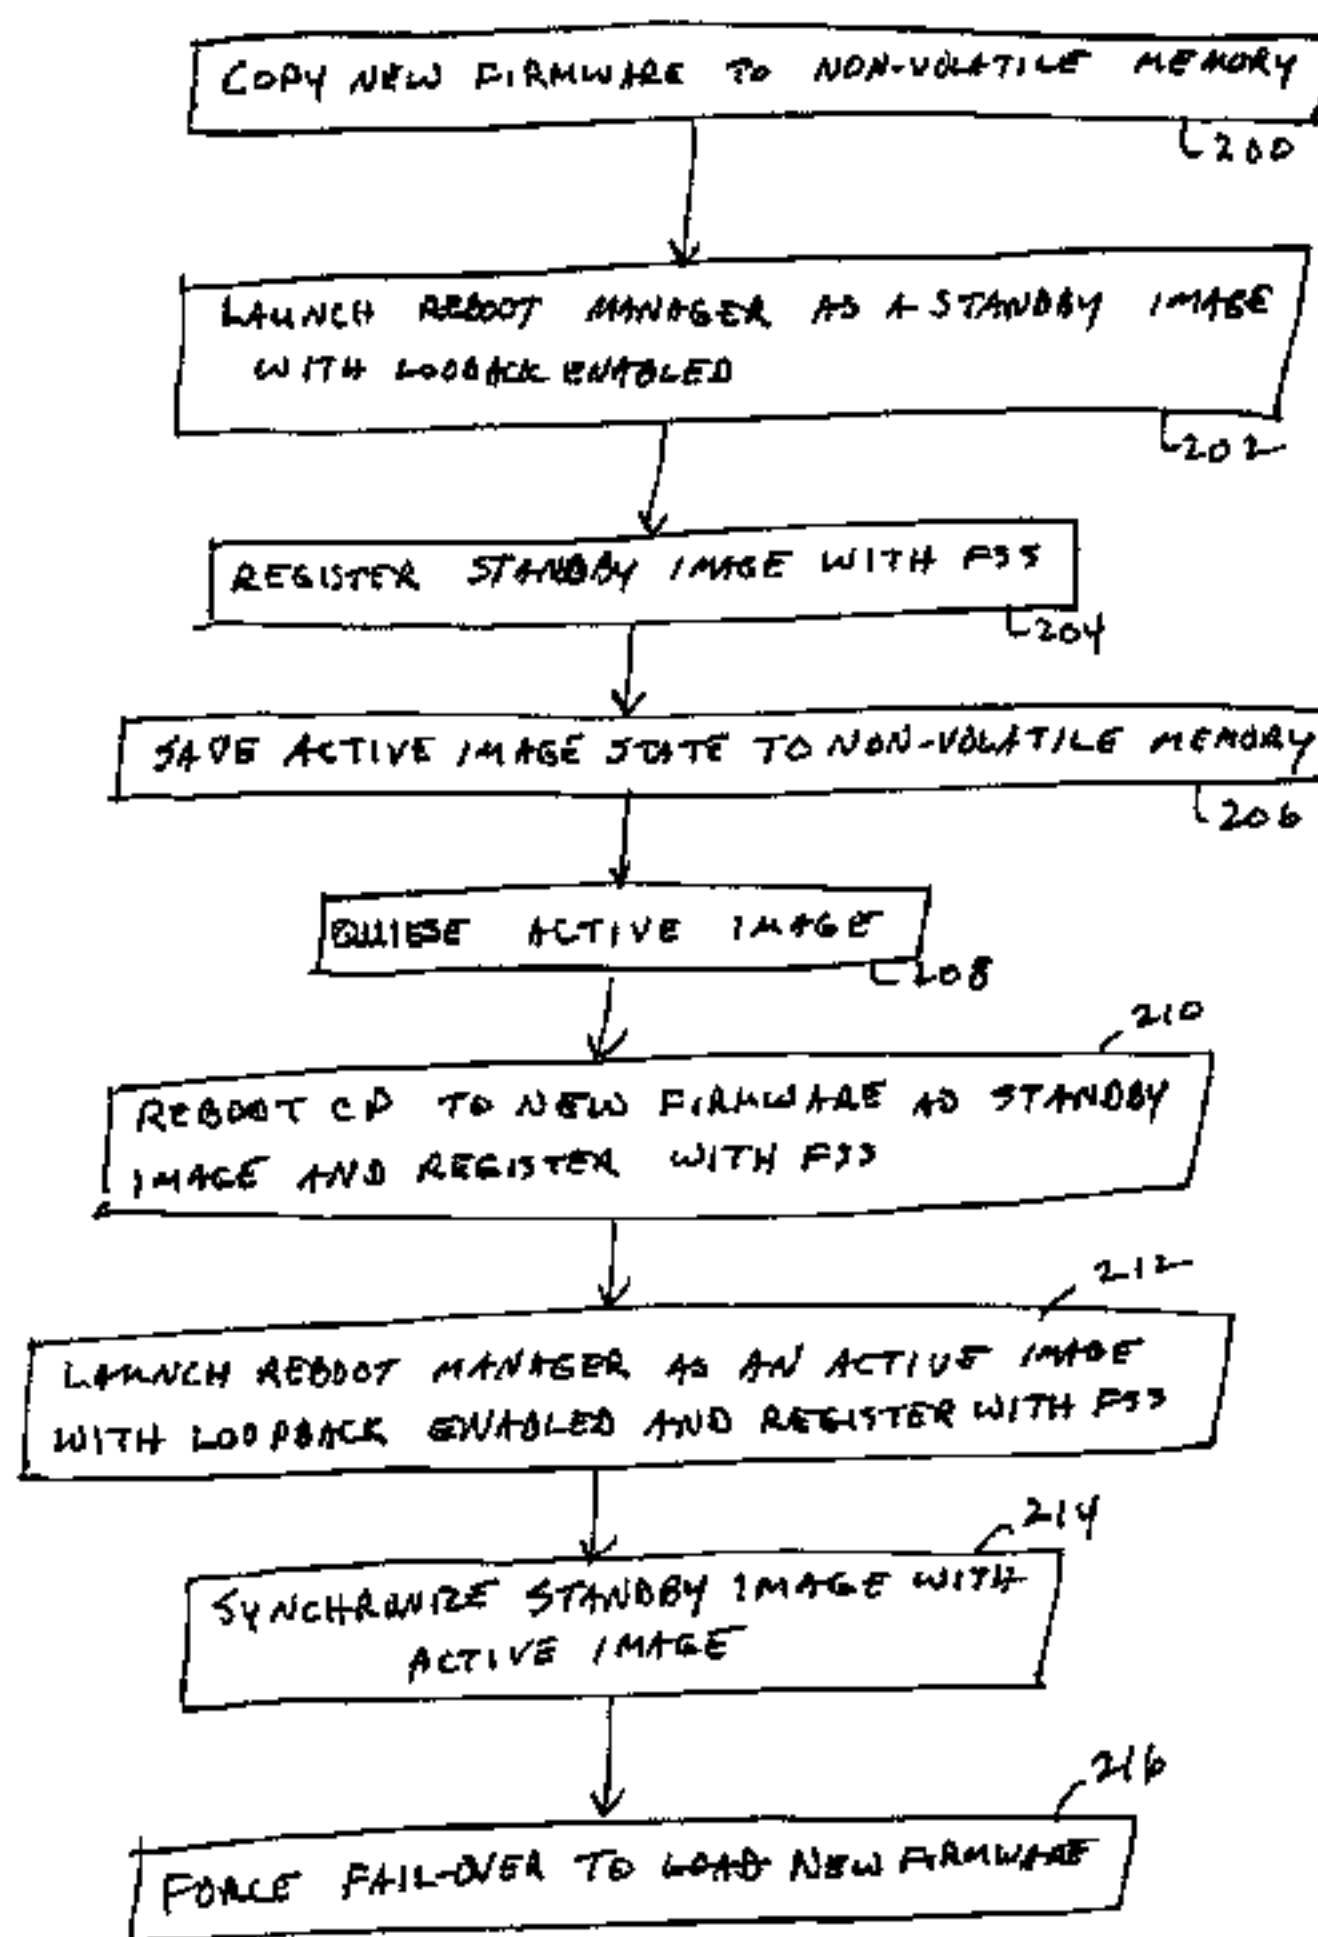 COPY NEW FIRMWARE TO NON-VOLATILE MEMORY
200
LAUNCH REBOOT MANAGER AS A STANDBY IMAGE
WITH LOOBACK ENABLED
202
REGISTER STANDBY IMAGE WITH FSS
204
SAVE ACTIVE IMAGE STATE TO NON-VOLATILE MEMORY
206
QUIESE ACTIVE IMAGE
208
210
REBOOT CP TO NEW FIRMWARE AS STANDBY
IMAGE AND REGISTER WITH FSS
212
LAUNCH REBOOT MANAGER AS AN ACTIVE IMAGE
WITH LOOPBACK ENABLED AND REGISTER WITH FSS
214
SYNCHRONIZE STANDBY IMAGE WITH
ACTIVE IMAGE
216
FORCE FAIL-OVER TO LOAD NEW FIRMWARE